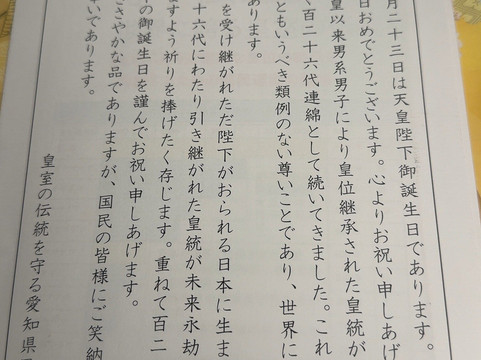 月二十三日は天皇陛下御誕生日であります。
日おめでとうございます。心よりお祝い申しあげ
皇以来男系男子により皇位継承された皇統が
く百二十六代連綿として続いてきました。これ
ともいうべき類例のない尊いことであり、世界に
あります。
を受け継がれただ陛下がおられる日本に生ま
十六代にわたり引き継がれた皇統が未来永劫
ますよう祈りを捧げたく存じます。重ねて百二
の御誕生日を謹んでお祝い申しあげます。
ささやかな品でありますが、国民の皆様にご笑納
いであります。
皇室の伝統を守る愛知県